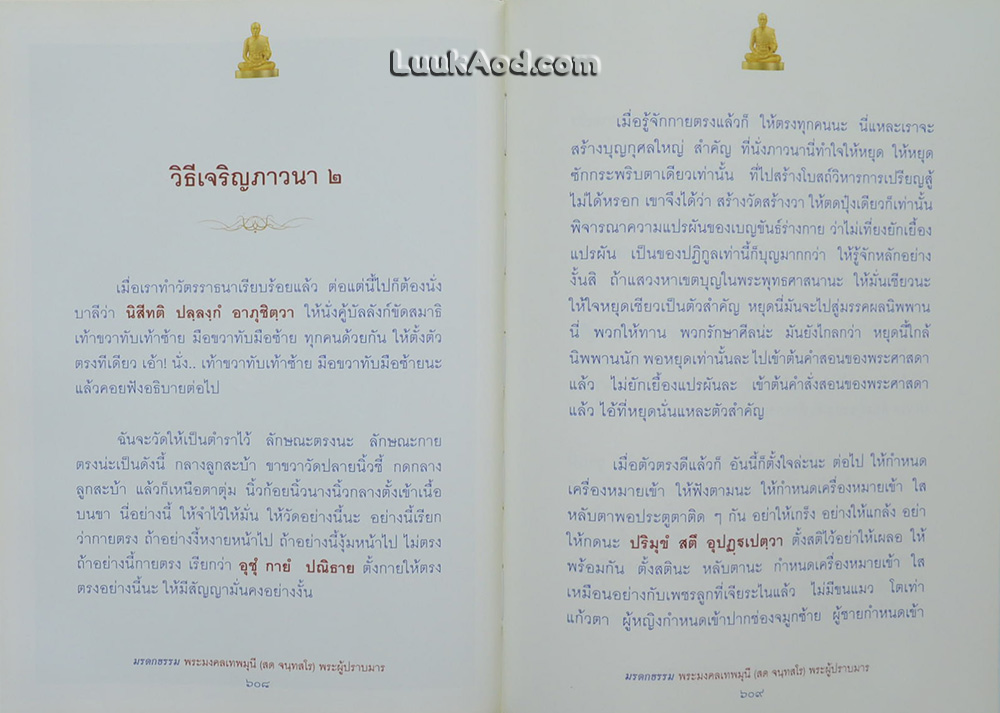 LuukAod.com
วิธีเจริญภาวนา ๒
เมื่อเราทำวัตรราธนาเรียบร้อยแล้ว ต่อแต่นี้ไปก็ต้องนั่ง
บาลีว่า นิสีทติ ปลฺลงฺกํ อาภุชิตฺวา ให้นั่งคู้บัลลังก์ขัดสมาธิ
เท้าขวาทับเท้าซ้าย มือขวาทับมือซ้าย ทุกคนด้วยกัน ให้ตั้งตัว
ตรงทีเดียว เอ้า! นั่ง.. เท้าขวาทับเท้าซ้าย มือขวาทับมือซ้ายนะ
แล้วคอยฟังอธิบายต่อไป
ฉันจะวัดให้เป็นตำราไว้ ลักษณะตรงนะ ลักษณะกาย
ตรงน่ะเป็นดังนี้ กลางลูกสะบ้า ขาขวาวัดปลายนิ้วชี้ กดกลาง
ลูกสะบ้า แล้วก็เหนือตาตุ่ม นิ้วก้อยนิ้วนางนิ้วกลางตั้งเข้าเนื้อ
บนขา นี่อย่างนี้ ให้จำไว้ให้มั่น ให้วัดอย่างนี้นะ อย่างนี้เรียก
ว่ากายตรง ถ้าอย่างงี้หงายหน้าไป ถ้าอย่างนี้งุ้มหน้าไป ไม่ตรง
ถ้าอย่างนี้กายตรง เรียกว่า อุชุํ กายํ ปณิธาย ตั้งกายให้ตรง
ตรงอย่างนี้นะ ให้มีสัญญามั่นคงอย่างงั้น
มรดกธรรม พระมงคลเทพมุนี (สด จนฺทสโร) พระผู้ปราบมาร
๖๐๘
เมื่อรู้จักกายตรงแล้วก็ ให้ตรงทุกคนนะ นี่แหละเราจะ
สร้างบุญกุศลใหญ่ สำคัญ ที่นั่งภาวนานี่ทำใจให้หยุด ให้หยุด
ซักกระพริบตาเดียวเท่านั้น ที่ไปสร้างโบสถ์วิหารการเปรียญสู้
ไม่ได้หรอก เขาจึงได้ว่า สร้างวัดสร้างวา ให้ตดปุ๋งเดียวก็เท่านั้น
พิจารณาความแปรผันของเบญขันธ์ร่างกาย ว่าไม่เที่ยงยักเยื้อง
แปรผัน เป็นของปฏิกูลเท่านี้ก็บุญมากกว่า ให้รู้จักหลักอย่าง
งั้นสิ ถ้าแสวงหาเขตบุญในพระพุทธศาสนานะ ให้มั่นเชียวนะ
ให้ใจหยุดเชียวเป็นตัวสำคัญ หยุดนี่มันจะไปสู่มรรคผลนิพพาน
นี่ พวกให้ทาน พวกรักษาศีลน่ะ มันยังไกลกว่า หยุดนี่ใกล้
นิพพานนัก พอหยุดเท่านั้นละ ไปเข้าต้นคำสอนของพระศาสดา
แล้ว ไม่ยักเยื้องแปรผันละ เข้าต้นคำสั่งสอนของพระศาสดา
แล้ว ไอ้ที่หยุดนั่นแหละตัวสำคัญ
เมื่อตัวตรงดีแล้วก็ อันนี้ก็ตั้งใจล่ะนะ ต่อไป ให้กำหนด
เครื่องหมายเข้า ให้ฟังตามนะ ให้กำหนดเครื่องหมายเข้า ใส
หลับตาพอประตูตาติด ๆ กัน อย่าให้เกร็ง อย่างให้แกล้ง อย่า
ให้กดนะ ปริมุขํ สตึ อุปฏฺฐเปตฺวา ตั้งสติไว้อย่าให้เผลอ ให้
พร้อมกัน ตั้งสตินะ หลับตานะ กำหนดเครื่องหมายเข้า ใส
เหมือนอย่างกับเพชรลูกที่เจียระไนแล้ว ไม่มีขนแมว โตเท่า
แก้วตา ผู้หญิงกำหนดเข้าปากช่องจมูกซ้าย ผู้ชายกำหนดเข้า
มรดกธรรม พระมงคลเทพมุนี (สด จนฺทสโร) พระผู้ปราบมาร
๖๐๙